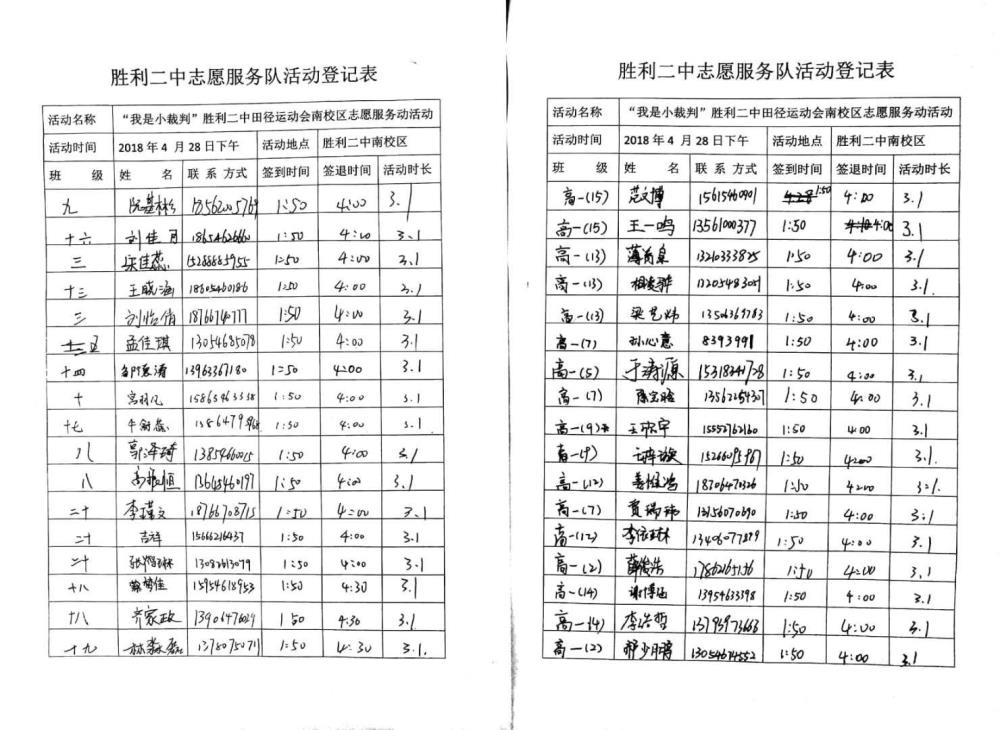 胜利二中志愿服务队活动登记表
活动名称 “我是小裁判”胜利二中田径运动会南校区志愿服务动活动
活动时间 2018 年 4 月 28 日下午 活动地点 胜利二中南校区
班 级 姓 名 联 系 方式 签到时间 签退时间 活动时长
九 1:50 4:00 3.1
十六 刘佳 1:50 4:00 3.1
三 宋佳蕊 15288885955 1:50 4:00 3.1
十三 王晓涵 18605460186 1:50 4:00 3.1
三 刘怡倩 1:50 4:00 3.1
五 孟佳琪 13054685078 1:50 4:00 3.1
十四 13963367180 1:50 4:00 3.1
十 宫羽凡 15865463338 1:50 4:00 3.1
十七 1:50 4:00 3.1
八 郭泽琦 1:50 4:00 3.1
八 13645460197 1:50 4:00 3.1
二十 李瑾文 18766708715 1:50 4:00 3.1
二十 吉祥 15666216437 1:50 4:00 3.1
二十 13082613079 1:50 4:00 3.1
十八 15954618953 1:50 4:30 3.1
十八 齐家政 13906476029 1:50 4:30 3.1
十九 林淼磊 1:50 4:30 3.1.
胜利二中志愿服务队活动登记表
活动名称 “我是小裁判”胜利二中田径运动会南校区志愿服务动活动
活动时间 2018 年 4 月 28 日下午 活动地点 胜利二中南校区
班 级 姓 名 联 系 方式 签到时间 签退时间 活动时长
高一(15) 范文博 15615460901 1:50 4:00 3.1
高一(15) 王一鸣 13561000377 1:50 4:00 3.1
高一(13) 1:50 4:00 3.1
高一(13) 13205483051 1:50 4:00 3.1.
高一(13) 梁艺炜 13506369783 1:50 4:00 3.1
高一(7) 孙心意 8393991 1:50 4:00 3.1
高一(5) 于涛源 1:50 4:00 3.1
高一(7) 13562254307 1:50 4:00 3.1
高一(9) 王宗宇 15552762160 1:50 4:00 3.1
高一(9) 1:50 4:00 3.1.
高一(12) 18706470326 1:50 4:00 3.1.
高一(7) 贾瑞玮 13156070690 1:50 4:00 3.1
高一(12) 李依林 13406077879 1:50 4:00 3.1
高一(2) 薛俊浩 17862165136 1:50 4:00 3.1
高一(14) 谢博涵 13954633198 1:50 4:00 3.1
高一(14) 李浩哲 13793973663 1:50 4:00 3.1
高一(2) 13054674552 1:50 4:00 3.1